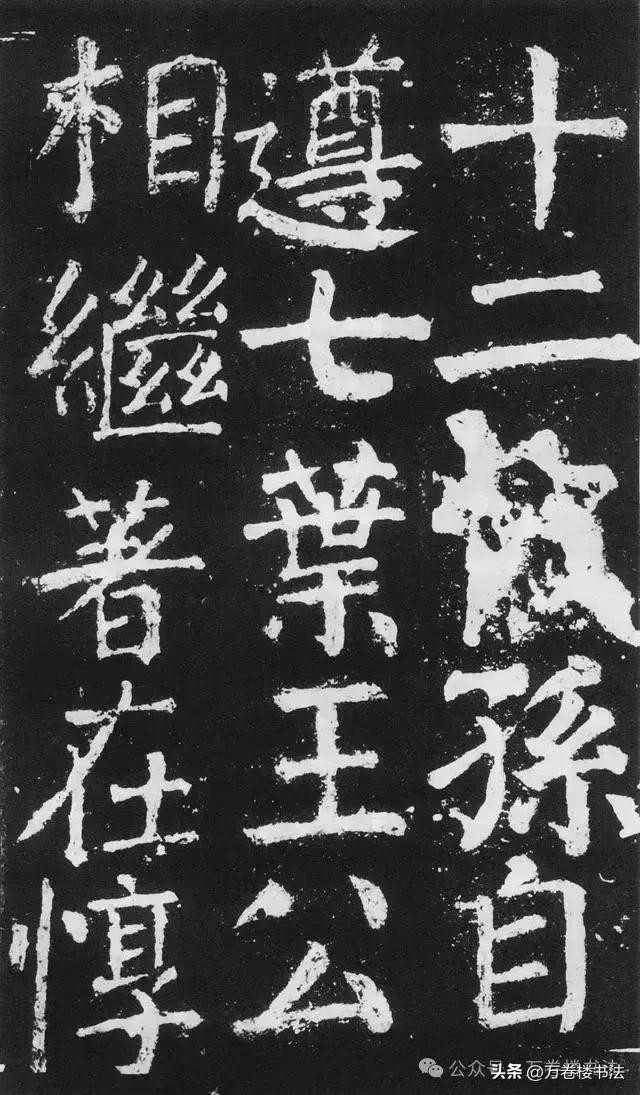 十二孫自
遵七葉王公
相繼著在惇
公众号
头条 @万卷楼书法